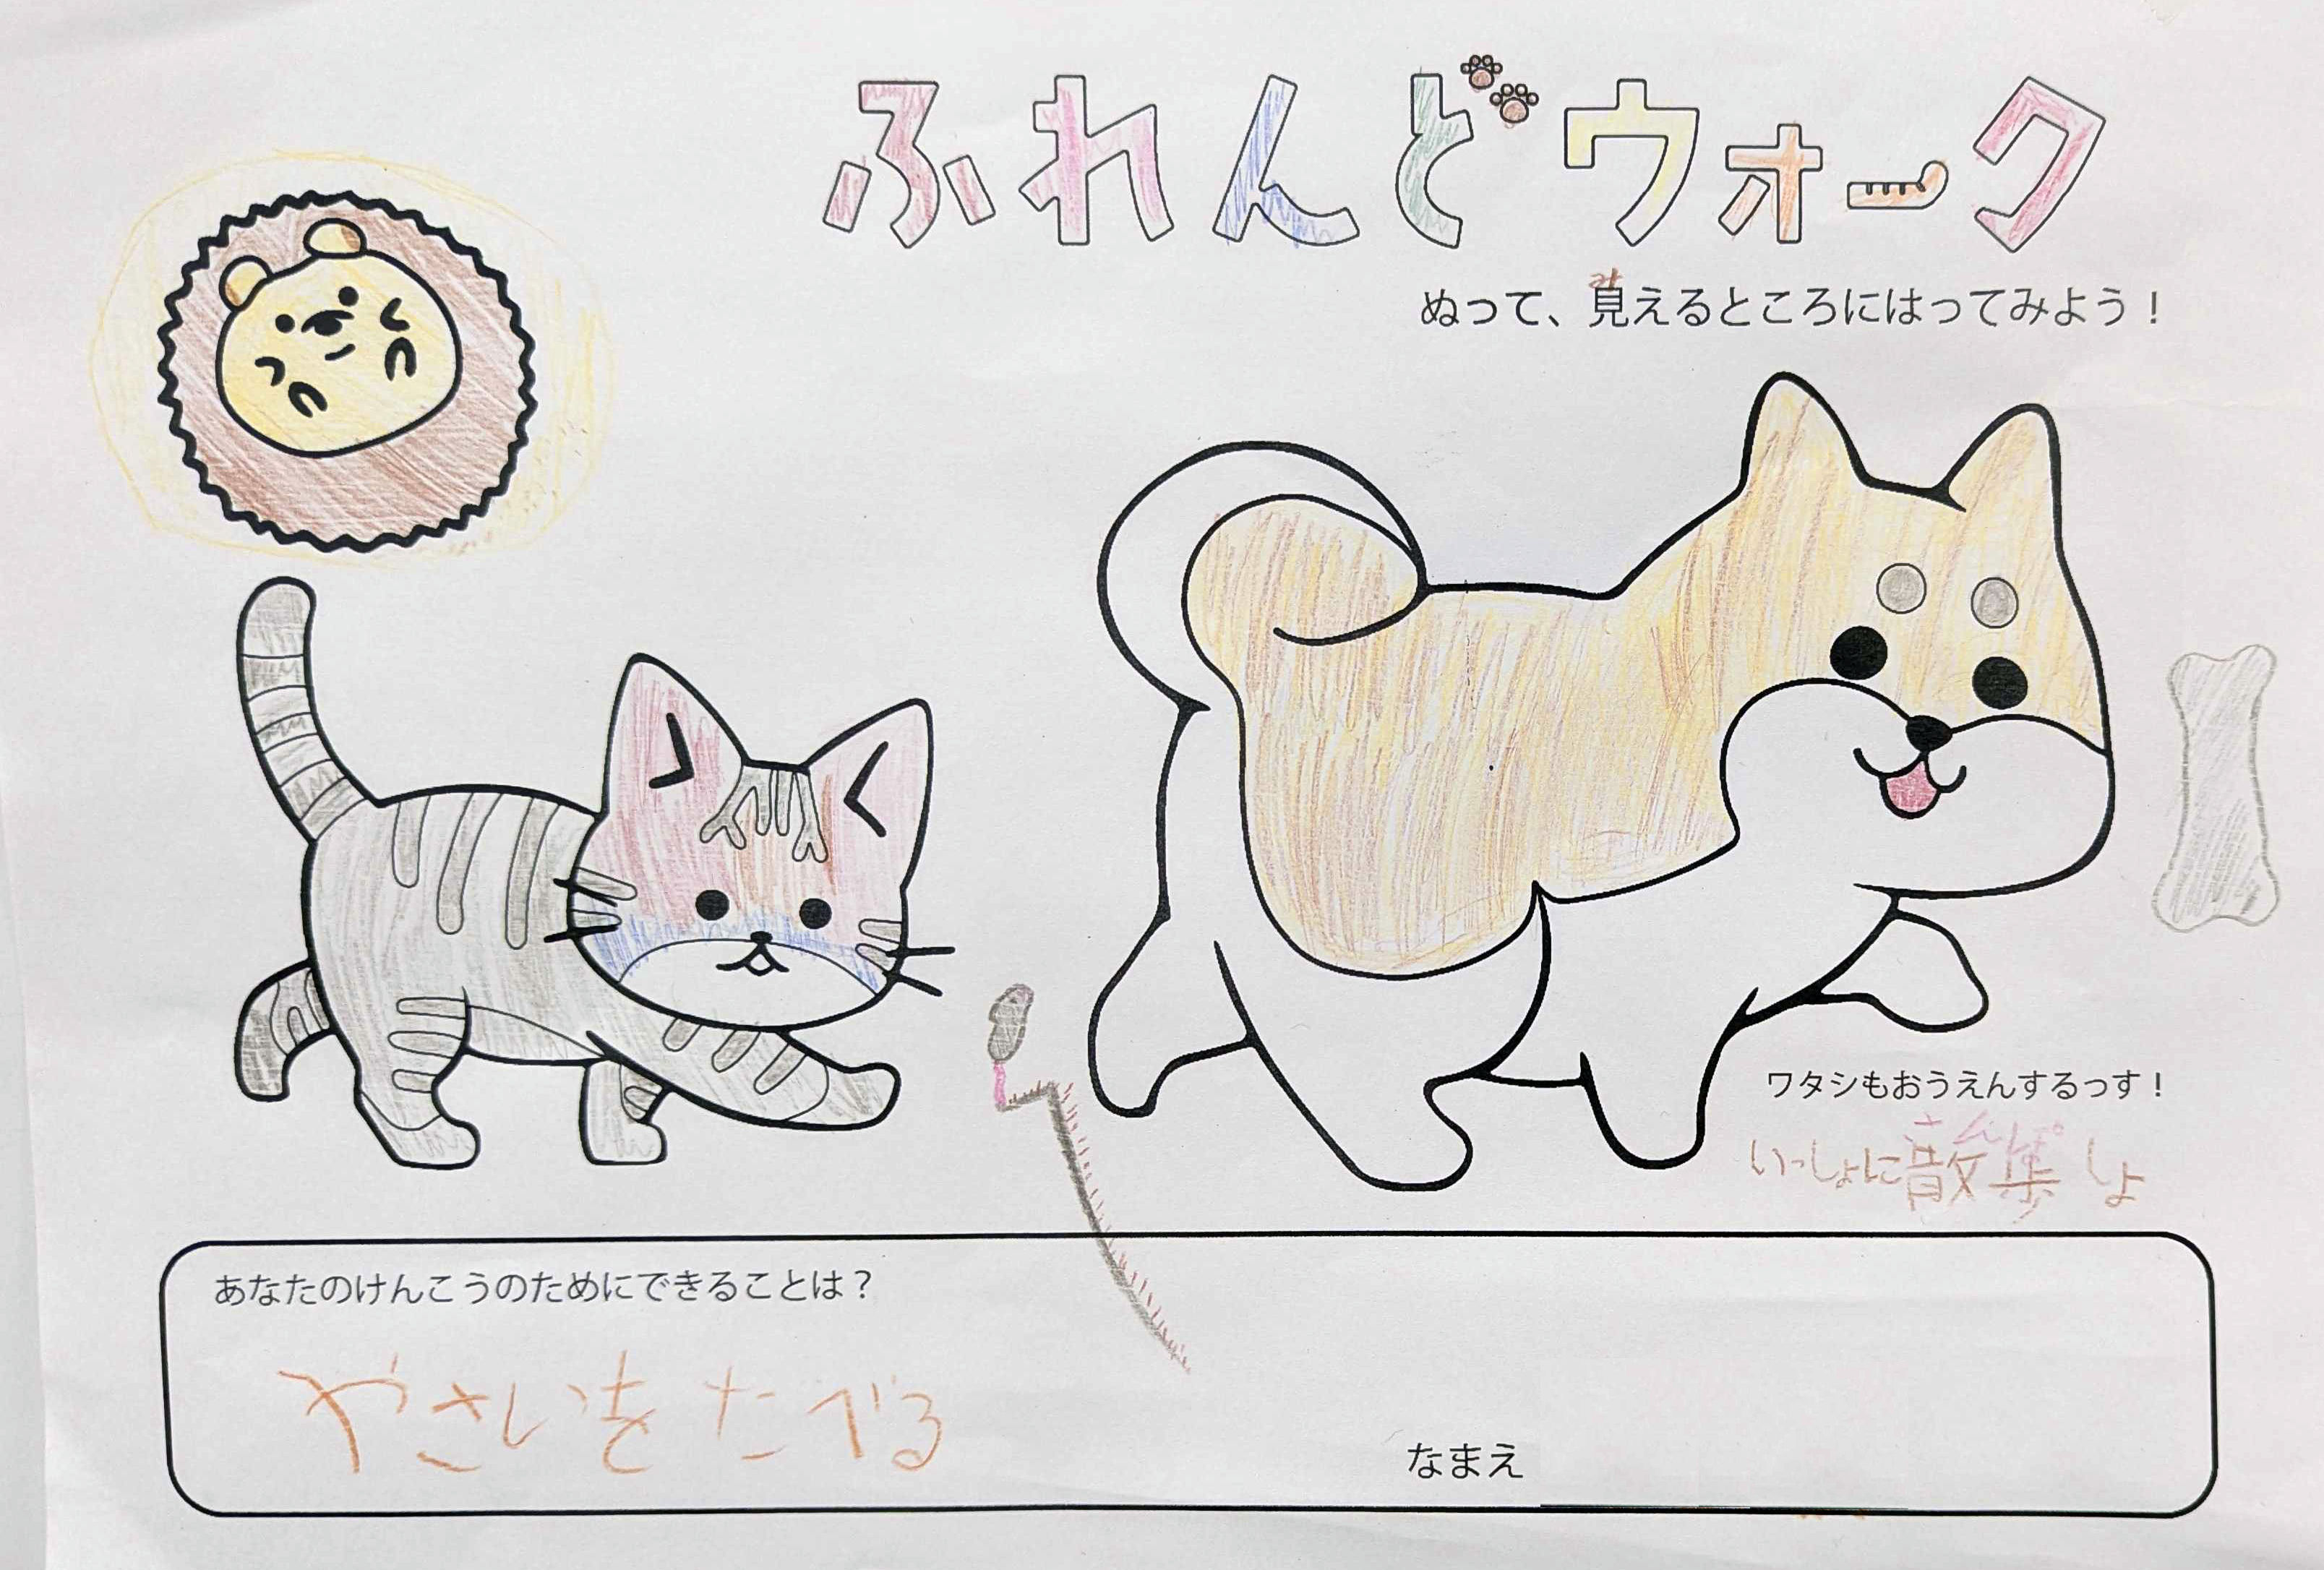 ふれんどウォーク
ぬって、見えるところにはってみよう！
み
ワタシもおうえんするっす！
さんぽ
いっしょに散歩しよ
あなたのけんこうのためにできることは？
やさいをたべる
なまえ